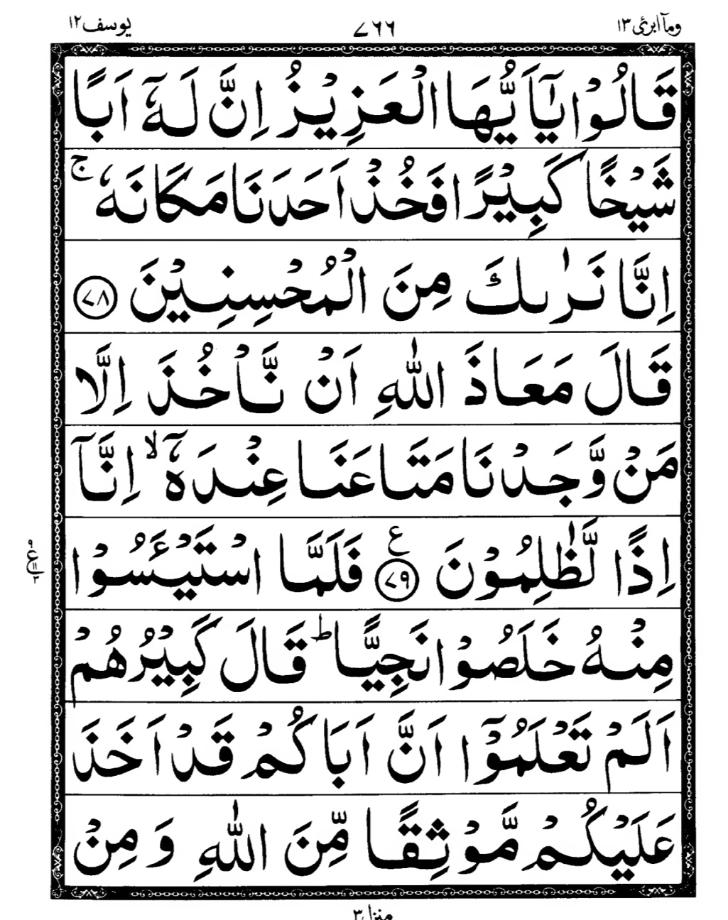 وماۤ ابرئ ١٣ ٧٦٦ يوسف ١٢
قَالُوْا يٰۤاَيُّهَا الْعَزِيْزُ اِنَّ لَهٗۤ اَبًا
شَيْخًا كَبِيْرًا فَخُذْ اَحَدَنَا مَكَانَهٗ ۚ
اِنَّا نَرٰىكَ مِنَ الْمُحْسِنِيْنَ ﴿٧٨﴾
قَالَ مَعَاذَ اللّٰهِ اَنْ نَّاْخُذَ اِلَّا
مَنْ وَّجَدْنَا مَتَاعَنَا عِنْدَهٗۤ ۙ اِنَّاۤ
اِذًا لَّظٰلِمُوْنَ ﴿٧٩﴾ ع فَلَمَّا اسْتَيْـَٔسُوْا
مِنْهُ خَلَصُوْا نَجِيًّا ؕ قَالَ كَبِيْرُهُمْ
اَلَمْ تَعْلَمُوْۤا اَنَّ اَبَاكُمْ قَدْ اَخَذَ
عَلَيْكُمْ مَّوْثِقًا مِّنَ اللّٰهِ وَ مِنْ
منزل ٣